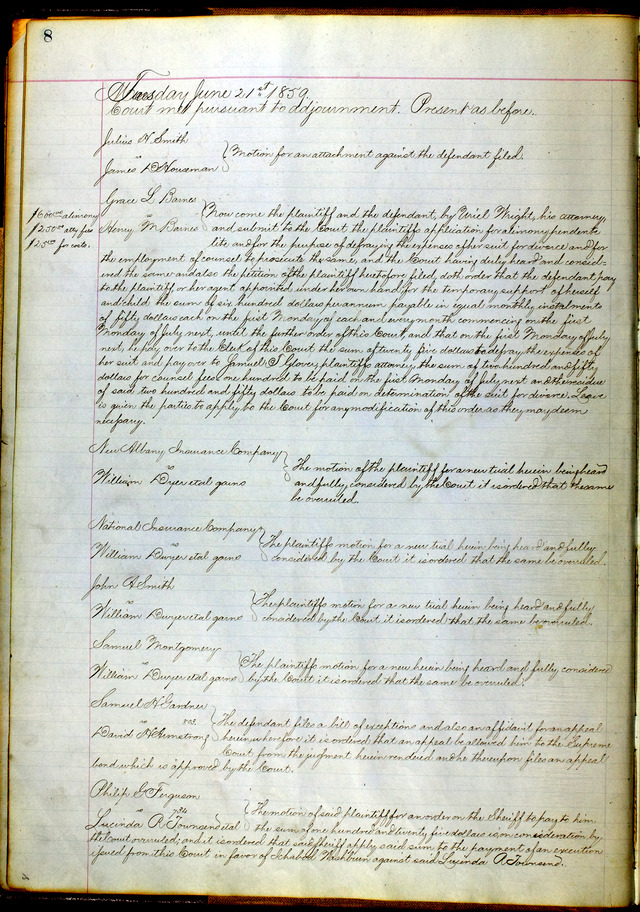 8
Tuesday June 21st 1859
Court met pursuant to adjournment. Present as before.
Julius H Smith
vs
James D Houseman
Motion for an attachment against the defendant filed.
Grace L Barnes
vs
Henry M Barnes
$600.00 alimony
$250.00 atty fees
$25.00 for costs.
Now come the plaintiff and the defendant, by Uriel Wright, his attorney,
and submit to the Court the plaintiffs application for alimony pendente
lite and for the purpose of defraying the expenses of her suit for divorce and for
the employment of counsel to prosecute the same, and the Court having duly heard and consid-
ered the same and also the petition of the plaintiff heretofore filed, doth order that the defendant pay
to the plaintiff or her agent appointed under her own hand for the temporary support of herself
and child the sum of six hundred dollars per annum payable in equal monthly instalments
of fifty dollars each on the first Monday of each and every month commencing on the first
Monday of July next, until the further order of this Court, and that on the first Monday of July
next, he pay over to the Clerk of this Court the sum of twenty five dollars to defray the expenses of
her suit and pay over to Samuel T Glover, plaintiffs attorney the sum of two hundred and fifty
dollars for counsel fees, one hundred to be paid on the first Monday of July next and the residue
of said two hundred and fifty dollars to be paid on determination of the suit for divorce. Leave
is given the parties to apply to the Court for any modification of this order as they may deem
necessary.
New Albany Insurance Company
vs
William Dwyer et al gains
The motion of the plaintiff for a new trial herein being heard
and fully considered by the Court it is ordered that the same
be overruled.
National Insurance Company
vs
William Dwyer et al gains
The plaintiffs motion for a new trial herein being heard and fully
considered by the Court it is ordered that the same be overruled.
John A Smith
vs
William Dwyer et al gains
The plaintiffs motion for a new trial herein being heard and fully
considered by the Court it is ordered that the same be overruled.
Samuel Montgomery
vs
William Dwyer et al gains
The plaintiffs motion for a new herein being heard and fully considered
by the Court it is ordered that the same be overruled.
Samuel H Gardner
vs
David H Armstrong
The defendant files a bill of exceptions and also an affidavit for an appeal
herein wherefore it is ordered that an appeal be allowed him to the Supreme
Court from the judgment herein rendered and he thereupon files an appeal
bond which is approved by the Court.
Philip G Ferguson
Lucinda R Townsend et al
The motion of said plaintiff for an order on the Sheriff to pay to him
the sum of one hundred and twenty five dollars is on consideration by
the Court overruled; and it is ordered that said sheriff apply said sum to the payment of an execution
issued from this Court in favor of Ichabod Washburn against said Lucinda R Townsend.